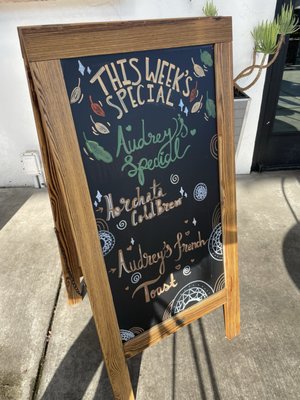 THIS WEEK'S
SPECIAL
Audrey's
Special
Horchata
Cold Brew
Audrey's French
Toast